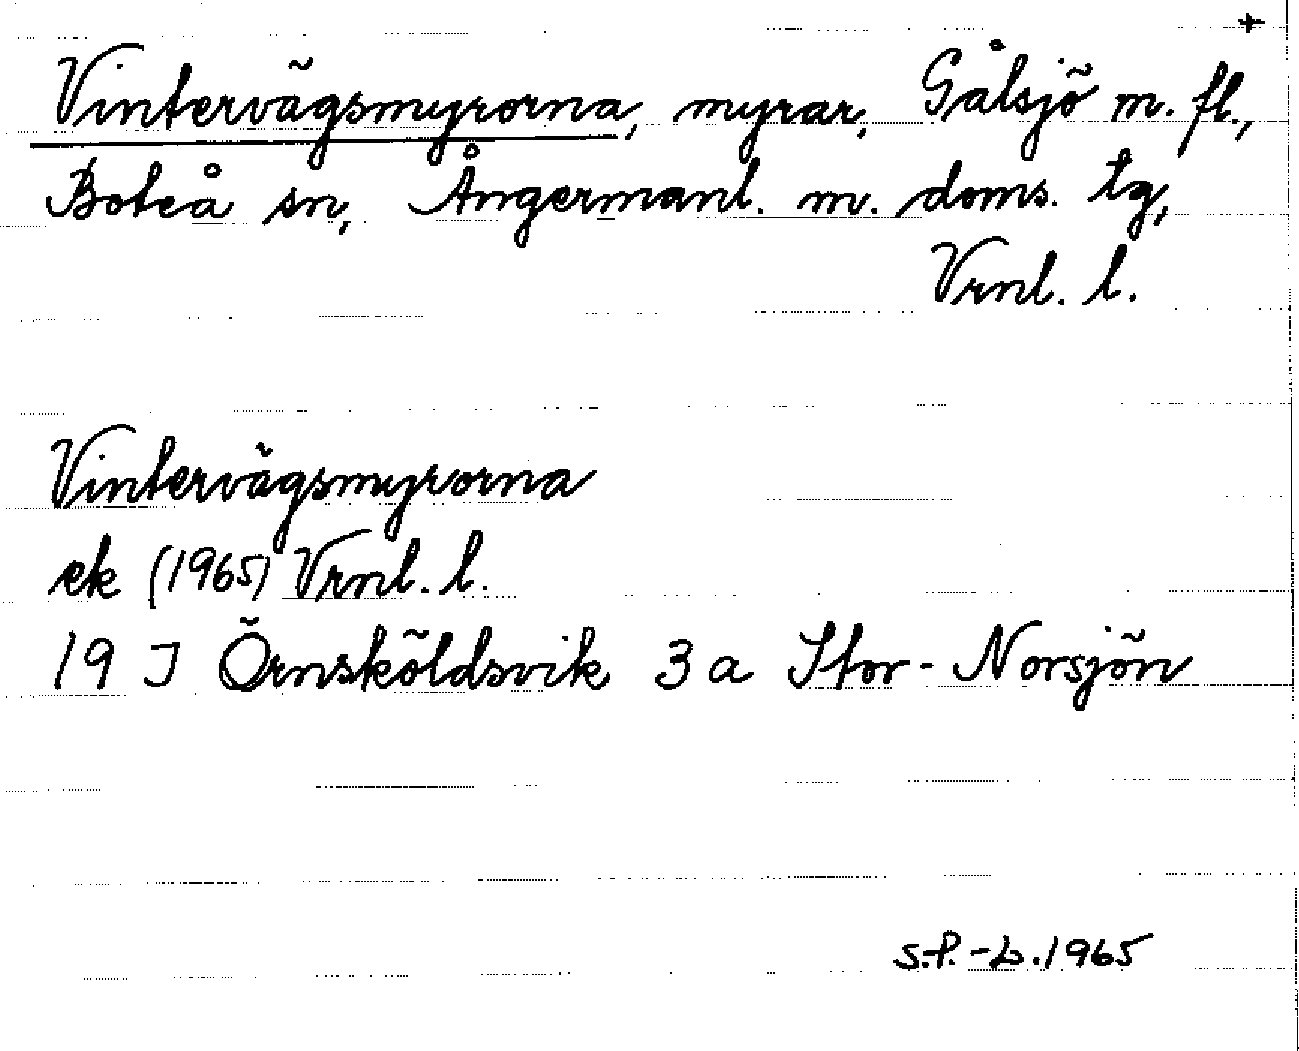 +
Vintervägsmyrorna, myrar, Gålsjö m. fl.,
Boteå sn, Ångermanl. m. doms. tg,
Vrnl. l.
Vintervägsmyrorna
ek (1965) Vrnl. l.
19 J Örnsköldsvik 3 a Stor-Norsjön
S.P.-L.1965